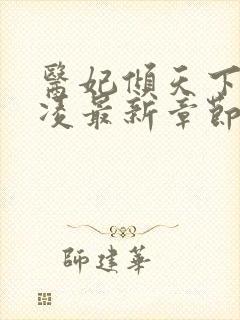 醫妃傾天下
凌最新章節
師建華